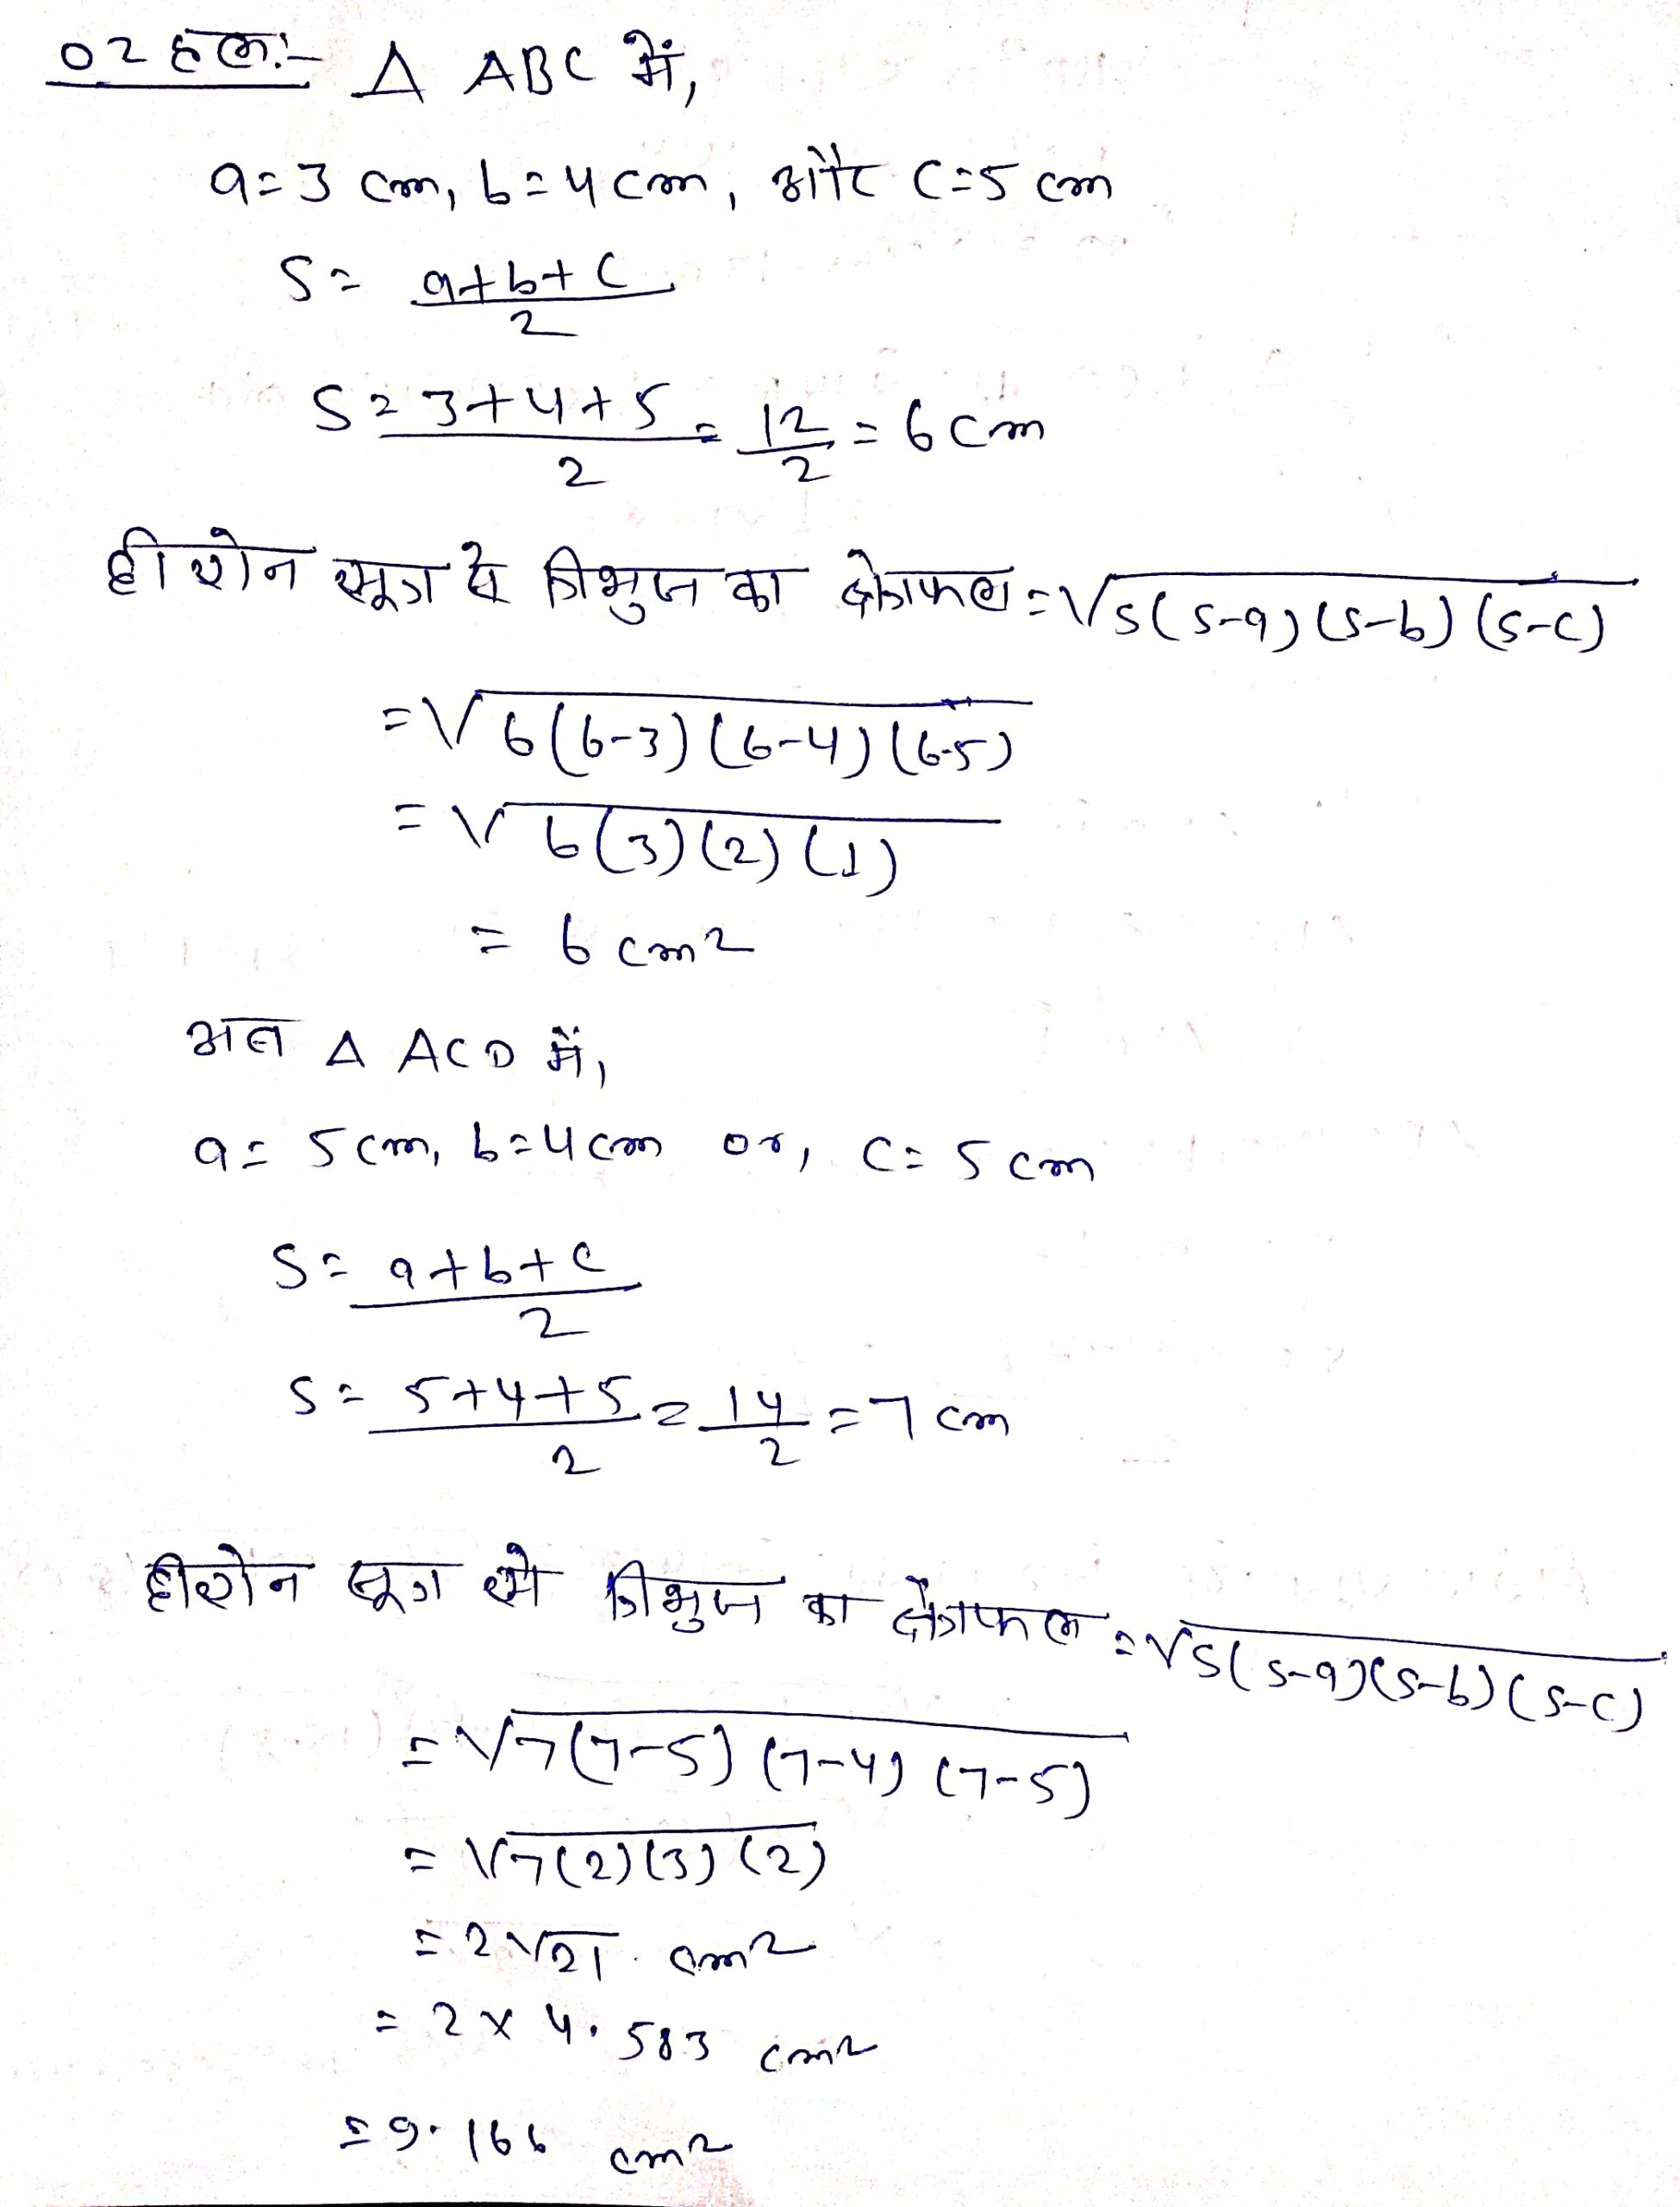 02 हल:- Δ ABC में,
a=3 cm, b=4 cm, और c=5 cm
S= a+b+c/2
S= 3+4+5/2 = 12/2 = 6 cm
हीरोन सूत्र से त्रिभुज का क्षेत्रफल = √s(s-a)(s-b)(s-c)
=√6(6-3)(6-4)(6-5)
=√6(3)(2)(1)
= 6 cm2
अब Δ ACD में,
a= 5 cm, b=4 cm or, c= 5 cm
S= a+b+c/2
S= 5+4+5/2 = 14/2 = 7 cm
हीरोन सूत्र से त्रिभुज का क्षेत्रफल = √s(s-a)(s-b)(s-c)
=√7(7-5)(7-4)(7-5)
=√7(2)(3)(2)
=2√21 cm2
= 2 x 4.583 cm2
=9.166 cm2